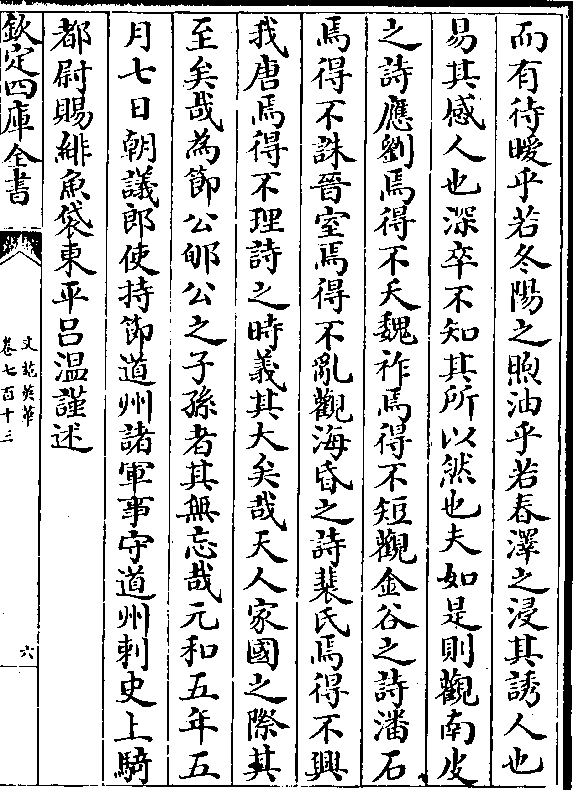 而有待曖乎若冬陽之煦油乎若春澤之浸其誘人也
易其感人也深卒不知其所以然也夫如是則觀南皮
之詩應劉焉得不夭魏祚焉得不短觀金谷之詩潘石
焉得不誅晉室焉得不亂觀海昏之詩裴氏焉得不興
我唐焉得不理詩之時義其大矣哉天人家國之際其
至矣哉為節公郇公之子孫者其無忘哉元和五年五
月七日朝議郎使持節道州諸軍事守道州刺史上騎
都尉賜緋魚袋東平呂溫謹述
欽定四庫全書
文苑英華
卷七百十三
六